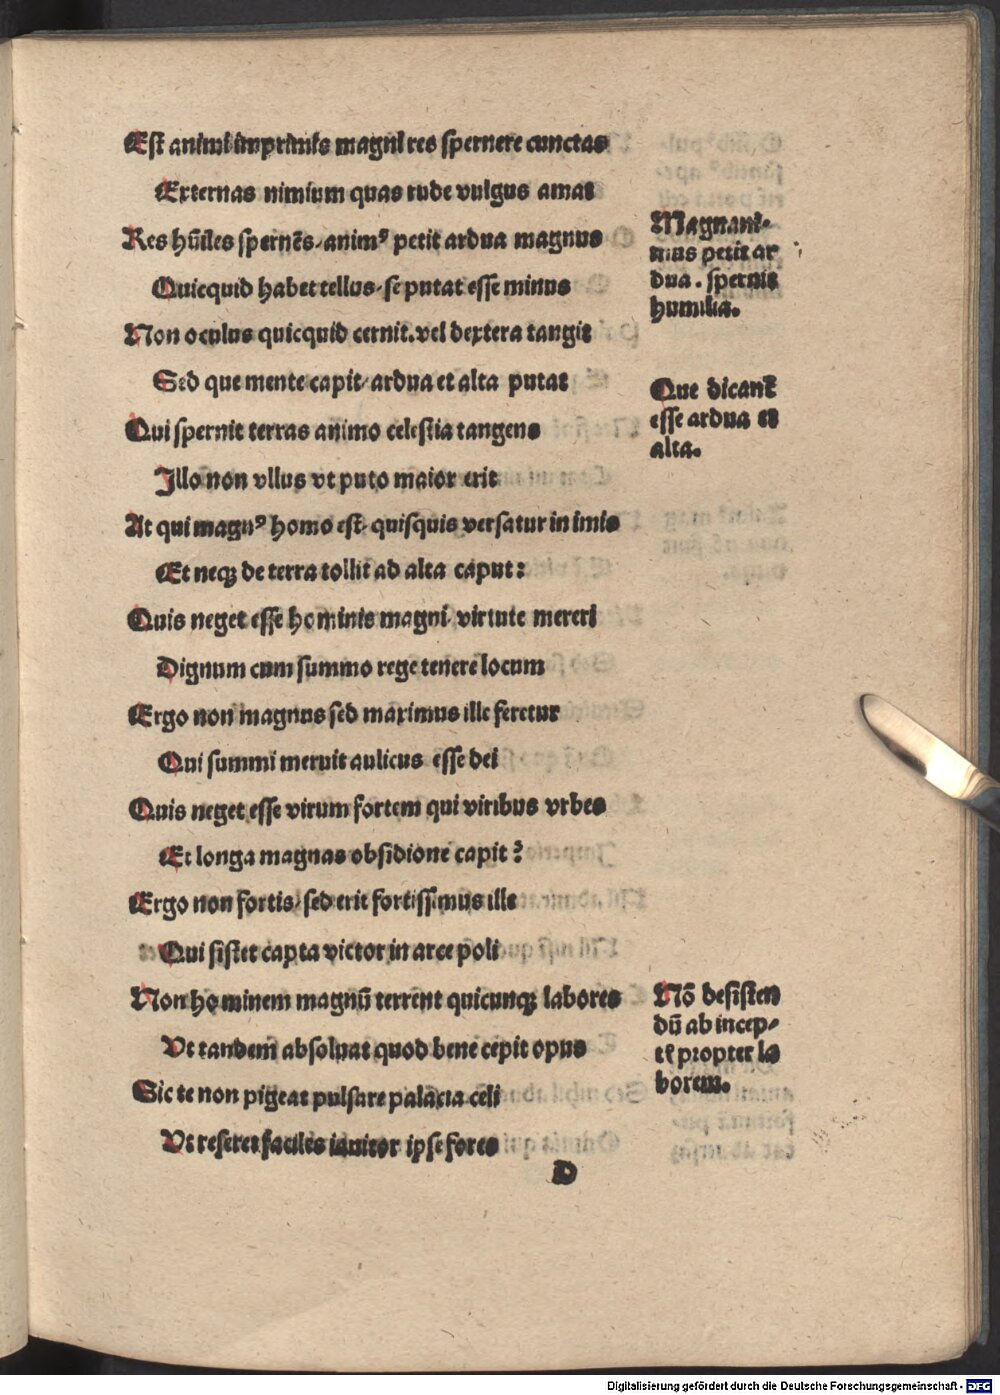 Est animi imprimis magni res spernere cunctas
Externas nimium quas rude vulgus amat
Res hūiles spernēs/animꝰ petit ardua magnus
Quicquid habet tellus/se putat esse minus
Non oculus quicquid cernit.vel dextera tangit
Sed que mente capit/ardua et alta putat
Qui spernit terras animo celestia tangens
Illo non vllus vt puto maior erit
At qui magnꝰ homo est/quisquis versatur in imis
Et neqꝫ de terra tollit ad alta caput:
Quis neget esse hominis magni/virtute mereri
Dignum cum summo rege tenere locum
Ergo non magnus sed maximus ille feretur
Qui summi meruit aulicus esse dei
Quis neget esse virum fortem qui viribus vrbes
Et longa magnas obsidione capit?
Ergo non fortis/sed erit fortissimus ille
Qui sistet capta victor in arce poli
Non hominem magnū terrent quicunqꝫ labores
Vt tandem absoluat quod bene cepit opus
Sic te non pigeat pulsare palacia celi
Vt reseret faciles ianitor ipse fores
D
Magnani-
mus petit ar
dua. spernit
humilia.
Que dicant̄
esse ardua et
alta.
Nō desisten
dū ab incep-
tꝭ propter la
borem.
Digitalisierung gefördert durch die Deutsche Forschungsgemeinschaft - DFG